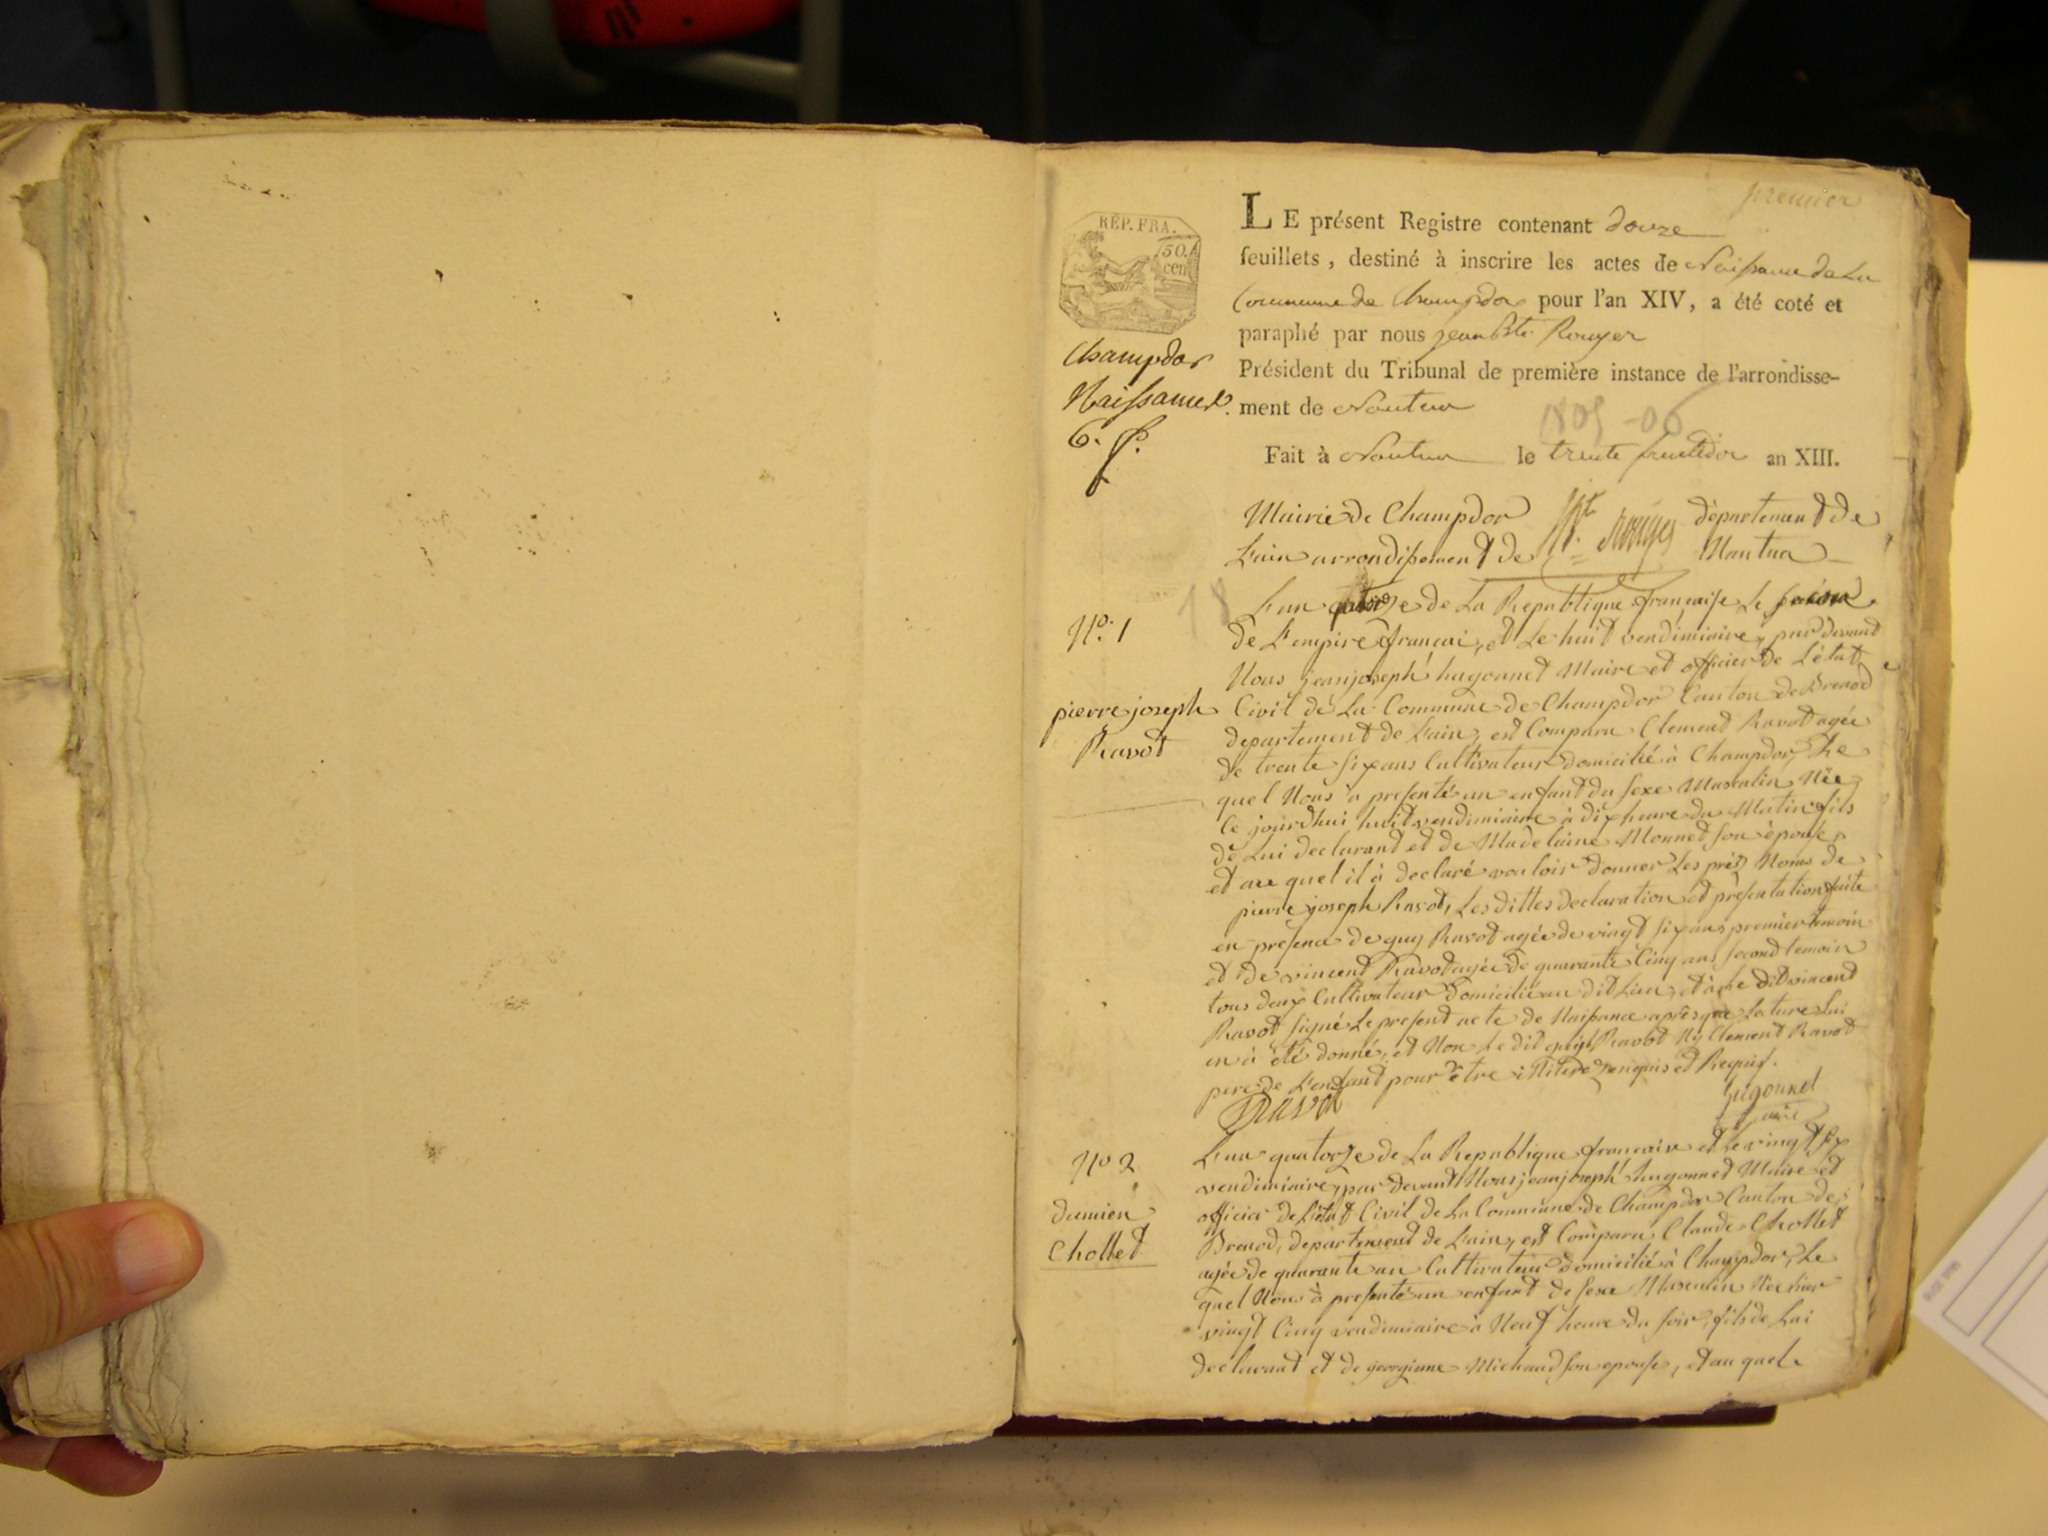 premier
RÉP. FRA.
50.
cen
Champdor
Naissances.
6. f.
LE présent Registre contenant douze
feuillets, destiné à inscrire les actes de Naissance de La
Commune de Champdor pour l'an XIV, a été coté et
paraphé par nous jean Bte. Rouyer
Président du Tribunal de première instance de l'arrondisse-
ment de Nantua
1805-06
Fait à Nantua le trente fructidor an XIII.
Mairie de Champdor département de
L'ain arrondissement de Nantua
18
No. 1
pierre joseph
Ravot
L'an quatorze de La Republique française Le
de L'empire françai, et Le huit vendimiaire, par devant
Nous jean joseph hugonnet Maire et officier de L'état
Civil de La Commune de Champdor Canton de Brenod
departement de L'ain, est Comparu Clement Ravot agée
de trente six ans Cultivateur domicilié à Champdor, Le
quel Nous a presenté un enfant du sexe Masculin Née
Ce jourdhui huit vendimiaire à dix heure du Matin fils
de Lui declarant et de Madelaine Monnet son épouse,
et au quel il à declaré vouloir donner Les prés Noms de
pierre joseph Ravot, Les dittes declaration et presentation faite
en presence de guy Ravot agée de vingt six ans premier temoin
et de vincent Ravot agée de quarante Cinq ans second temoin
tous deux Cultivateur domicilié au dit Lieu, et à Le dit vincent
Ravot signé Le present acte de Naissance apres que Lecture Lui
en à été donné, et Non Le dit guy Ravot Ny Clement Ravot
pere de L'enfant pour être illitere enquis et Requis.
Ravot
hugonnet
maire
No 2
damien
Chollet
L'an quatorze de La Republique francaise et Le vingt six
vendimiaire, par devant Nous jean joseph hugonnet Maire et
officier de L'état Civil de La Commune de Champdor Canton de
Brenod, departement de L'ain, est Comparu Claude Chollet
agée de quarante an Cultivateur domicilié à Champdor, Le
quel Nous à presenté un enfant de sexe Masculin Née hier
vingt Cinq vendimiaire à Neuf heure du soir, fils de Lui
declarant et de georginne Michaud son epouse, et au quel